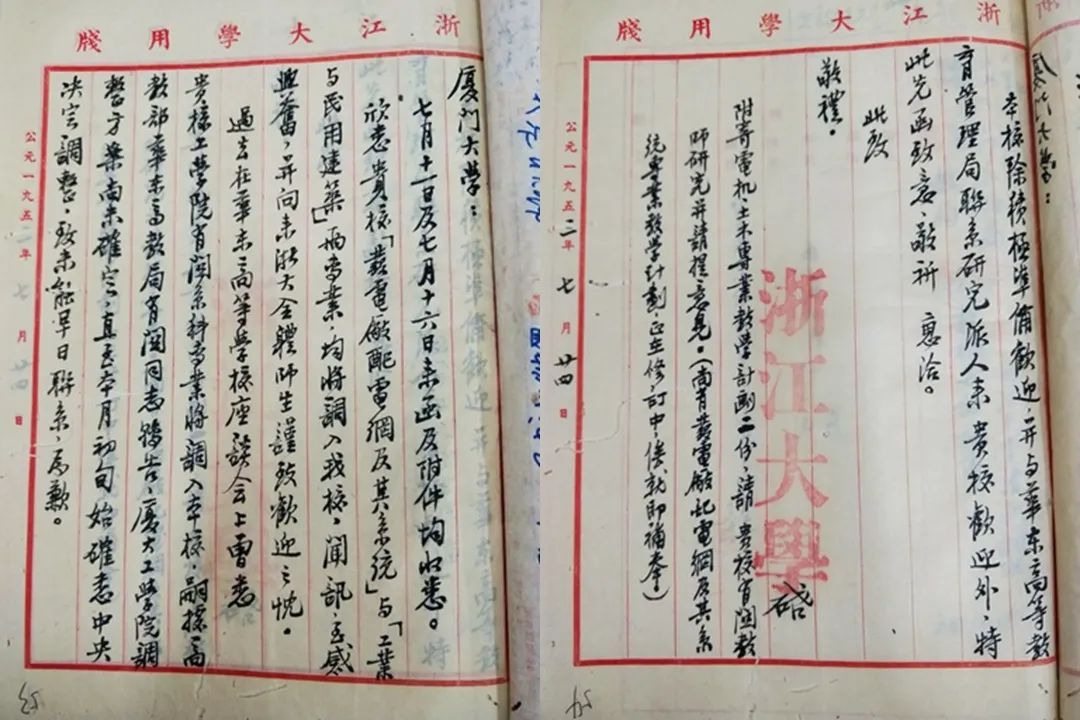 浙江大學用牋
厦门大學：
七月十一日及七月十六日来函及附件均收悉。
欣悉贵校「发電廠配電網及其系统」与「工業
与民用建築」两专業，均将調入我校，闻訊，至感
興奮，并向未浙大全體师生謹致歡迎之忱。
过去在華东高等学校座談会上曾悉
贵校工学院有関系科专業将調入本校，嗣据高
教部華东高教局有関同志転告，厦大工学院調
整方案尚未確定，直至本月初旬始確悉中央
决定調整，致未能早日聯系，為歉。
公元一九五三年 七 月 廿四 日
浙江大學用牋
本校除積極準備歡迎，并与華东高等教
育管理局聯系研究派人来 贵校歡迎外，特
此先函致意，敬祈 惠洽。
此致
敬禮。
附寄電机、土木專業教学計劃二份，請 贵校有関教
师研究并請提意見。（尚有發電廠配電網及其系
统專業教学計劃正在修訂中，俟就即補奉。）
浙江大學 啓
公元一九五三年 七 月 廿四 日